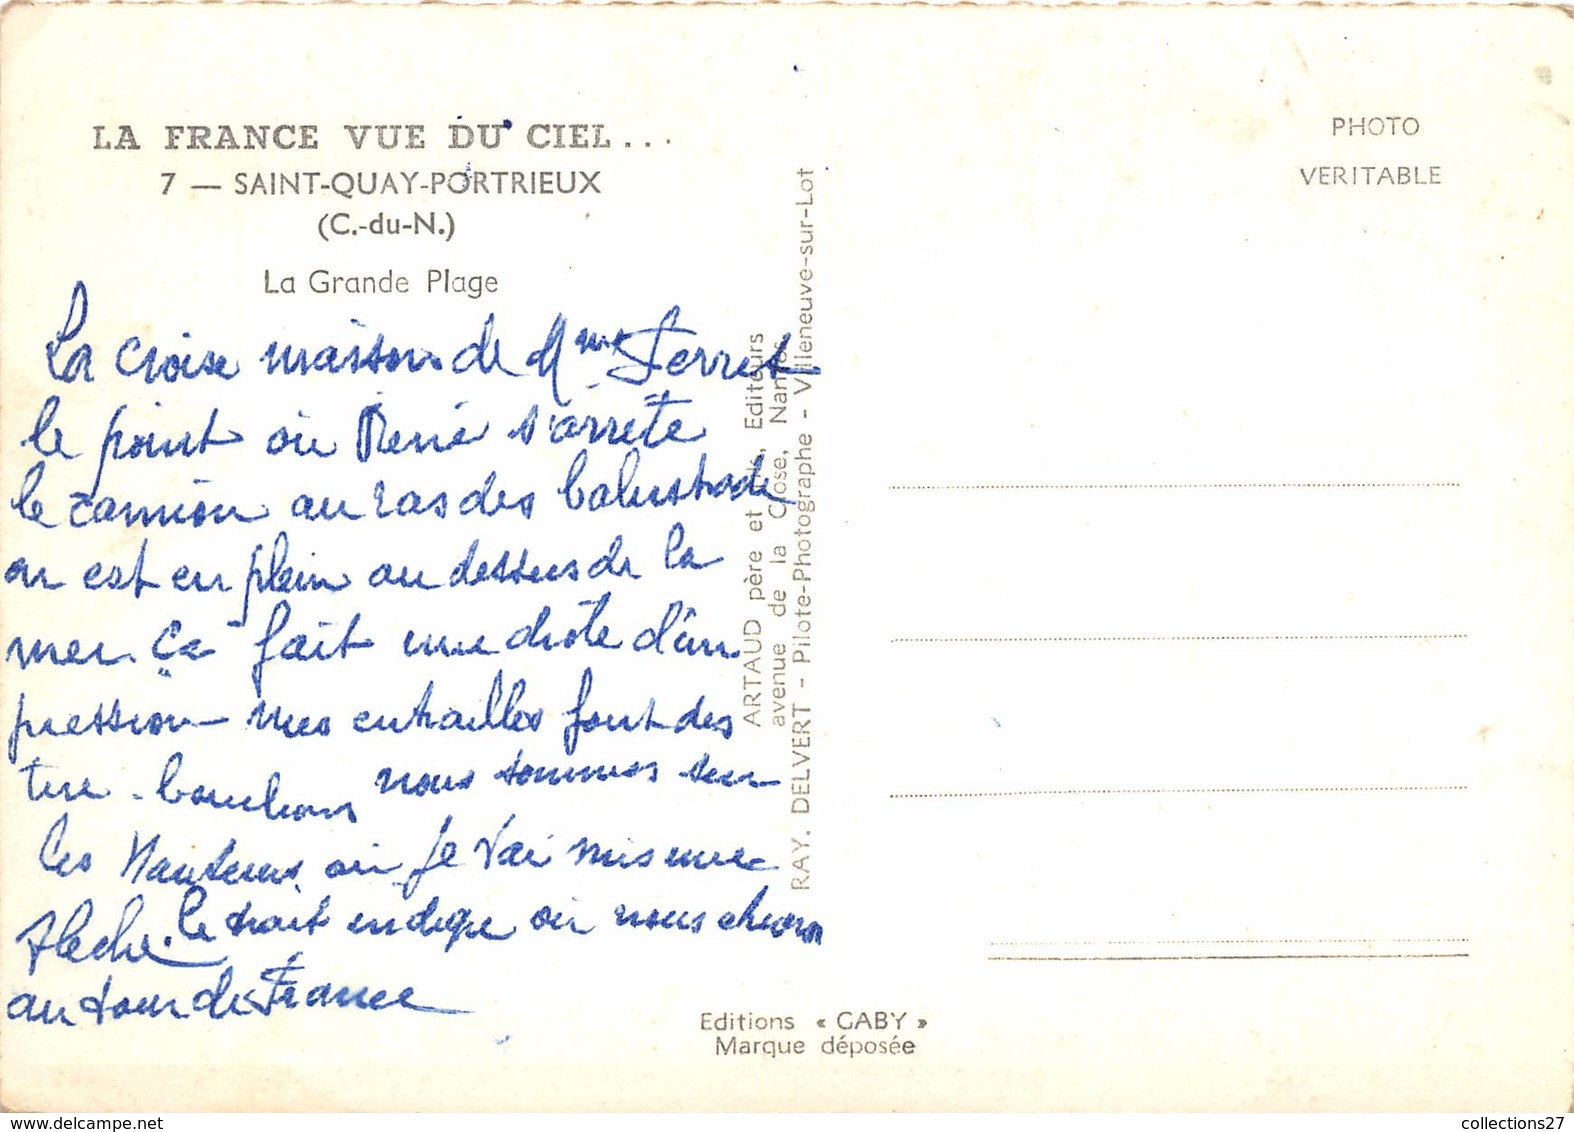 LA FRANCE VUE DU CIEL...
7 — SAINT-QUAY-PORTRIEUX
(C.-du-N.)
La Grande Plage
La croise maison de Mme Ferret
le point où René s'arrête
le camion au ras des balustrade
on est en plein au dessus de la
mer. Ça fait une drôle d'im
pression mes entrailles font des
tire-bouchons nous sommes sur
les Hauteurs où je l'ai mis une
flèche. le trait indique où nous
au tour de France
ARTAUD père et Editeurs
avenue de la Close, Nantes
RAY. DELVERT - Pilote-Photographe - Villeneuve-sur-Lot
PHOTO
VERITABLE
Editions « GABY »
Marque déposée
collections27